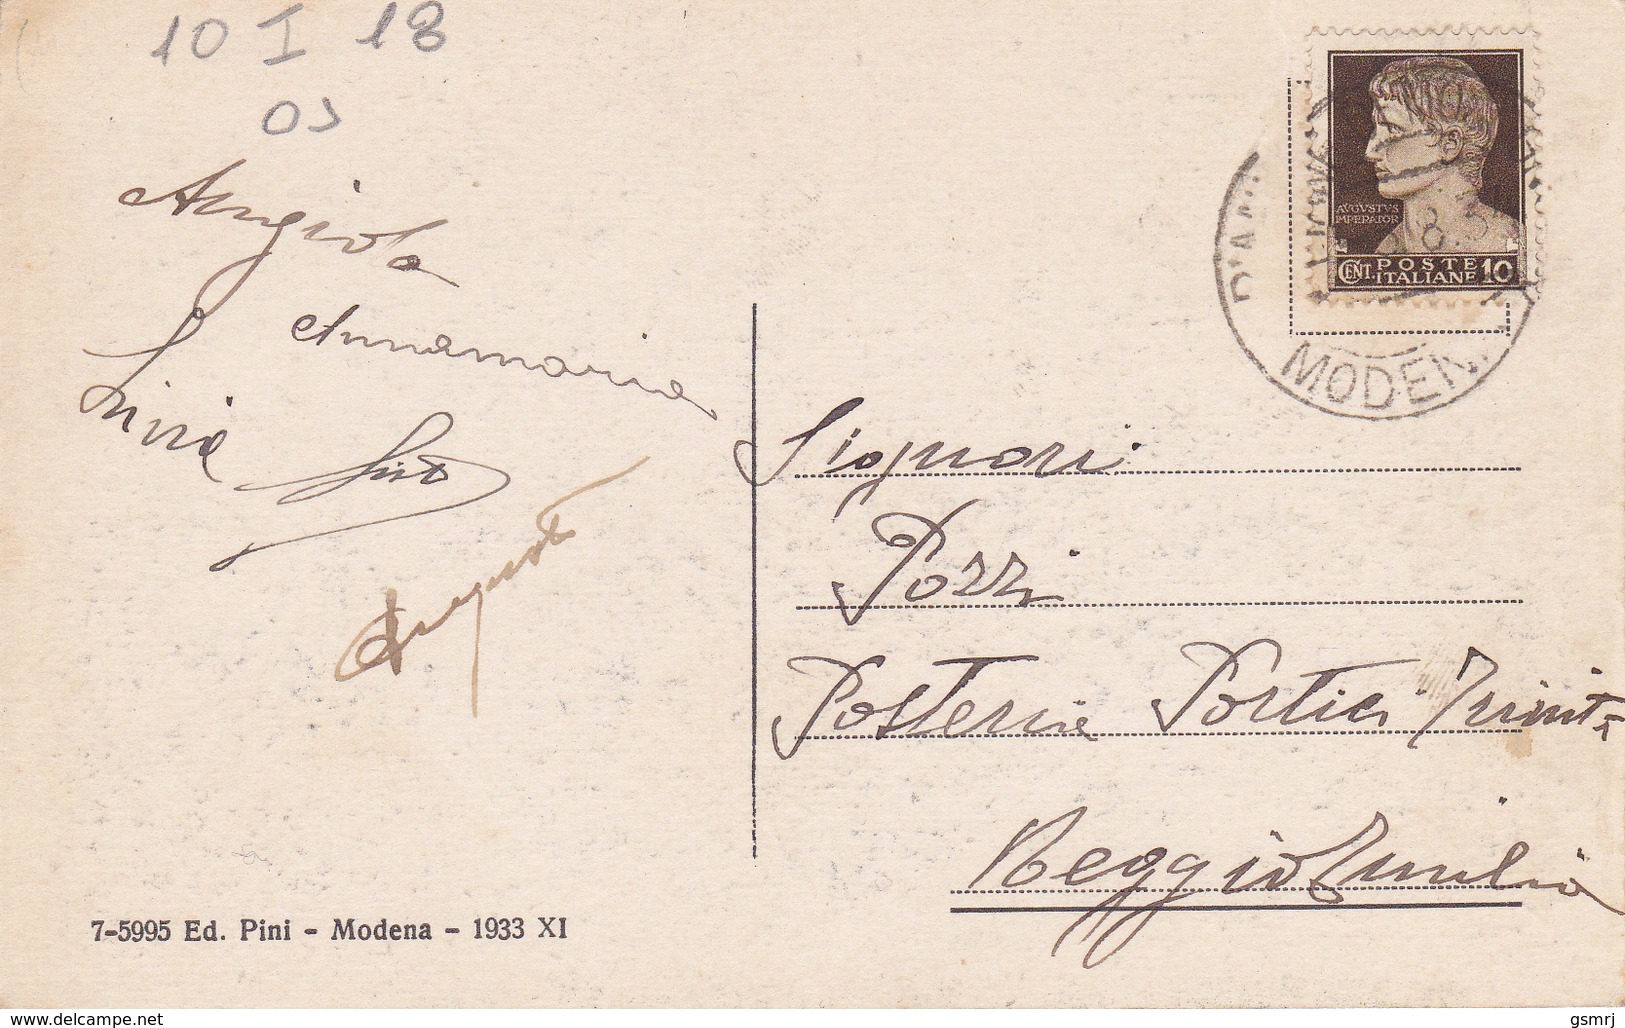 10 I 18
AVGVSTVS
IMPERATOR
CENT. POSTE ITALIANE 10
8.3
MODEN
Angiola
Annamaria
Livia
Augusto
Signori
Pozzi
Posterie Portici Trinità
Reggio Emilia
7-5995 Ed. Pini - Modena - 1933 XI
www.delcampe.net
gsmrj